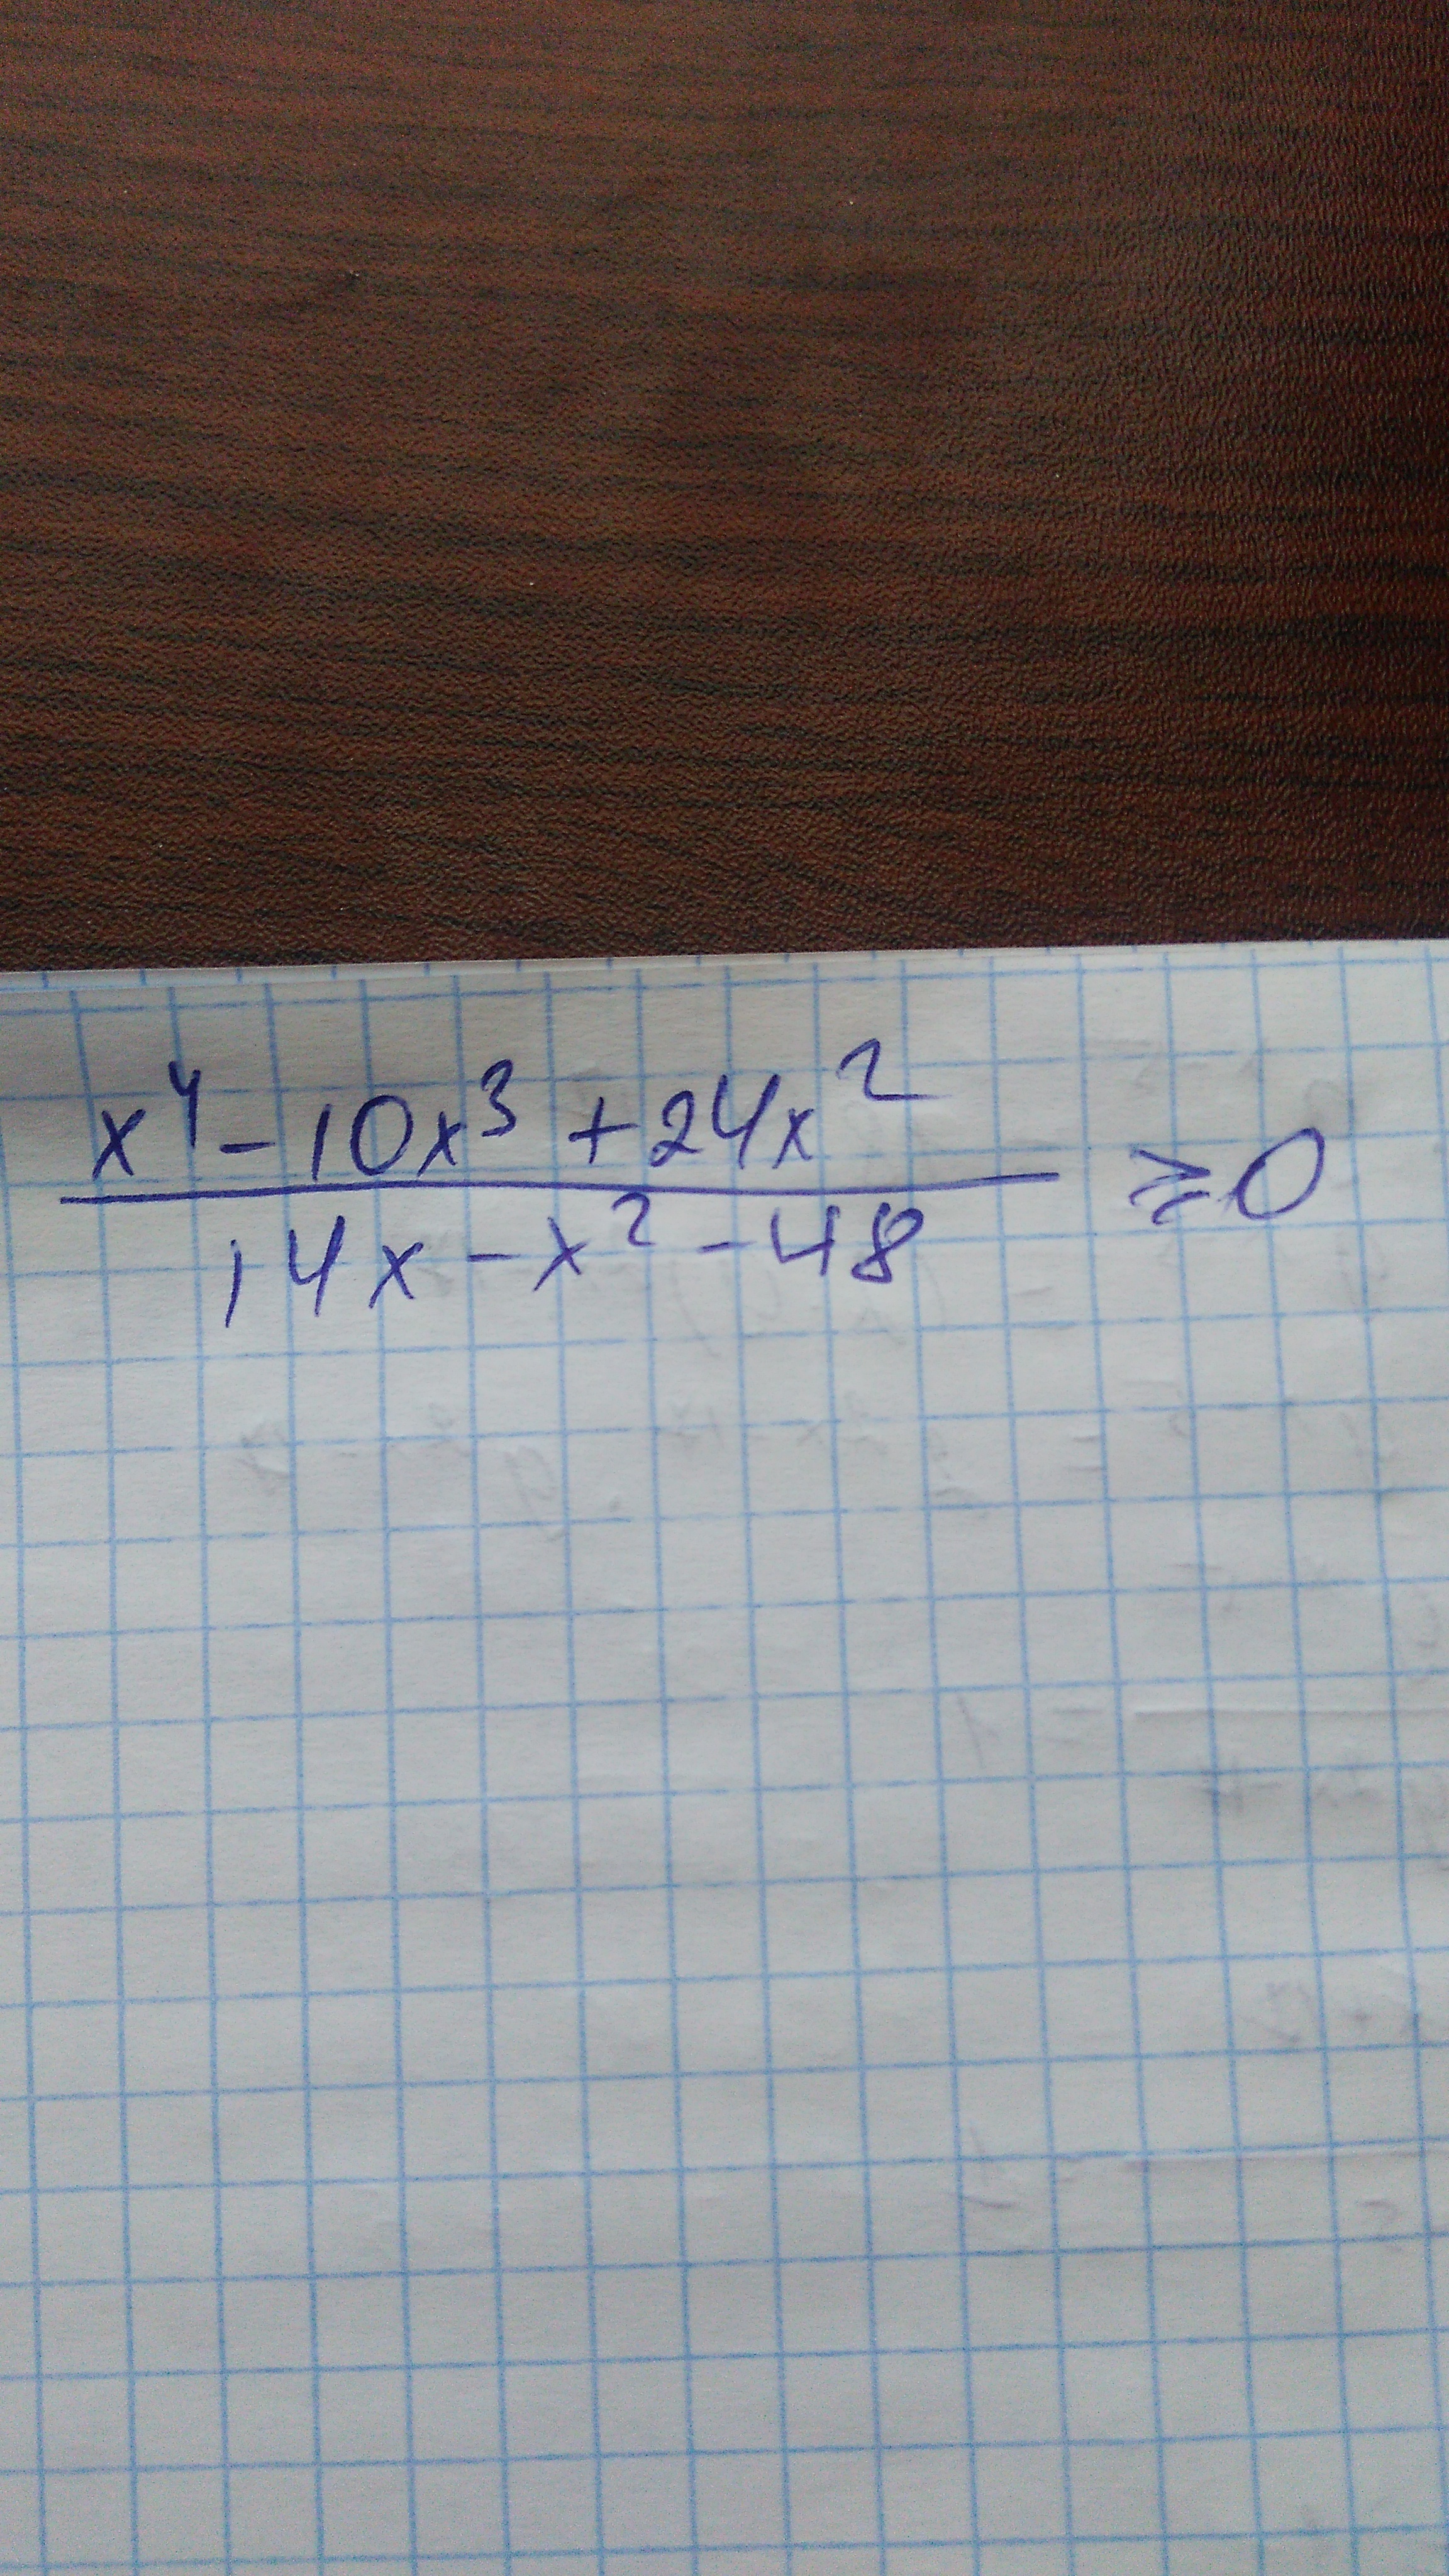 x⁴ - 10x³ + 24x²
14x - x² - 48
≥ 0